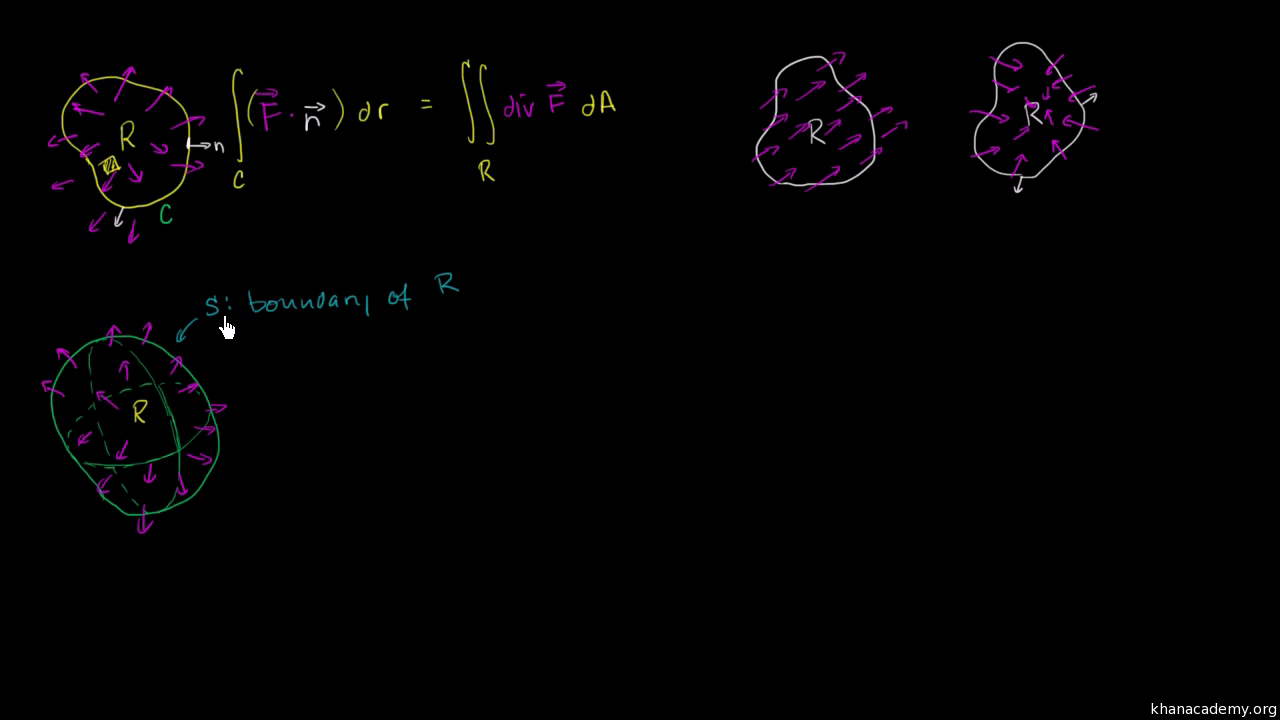 R
n
C
∫_C (F⃗ · n⃗) dr = ∬_R div F⃗ dA
R
R
S: boundary of R
R
khanacademy.org